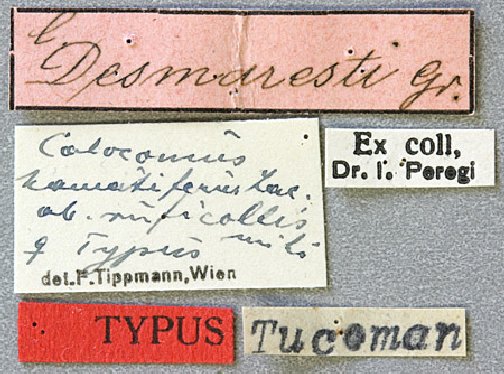 b
Desmaresti Gr.
Calocomus
hamatiferus Lac.
ab. ruficollis
♀ Typus mihi
det. F. Tippmann, Wien
Ex coll,
Dr. I. Peregi
TYPUS
Tucoman